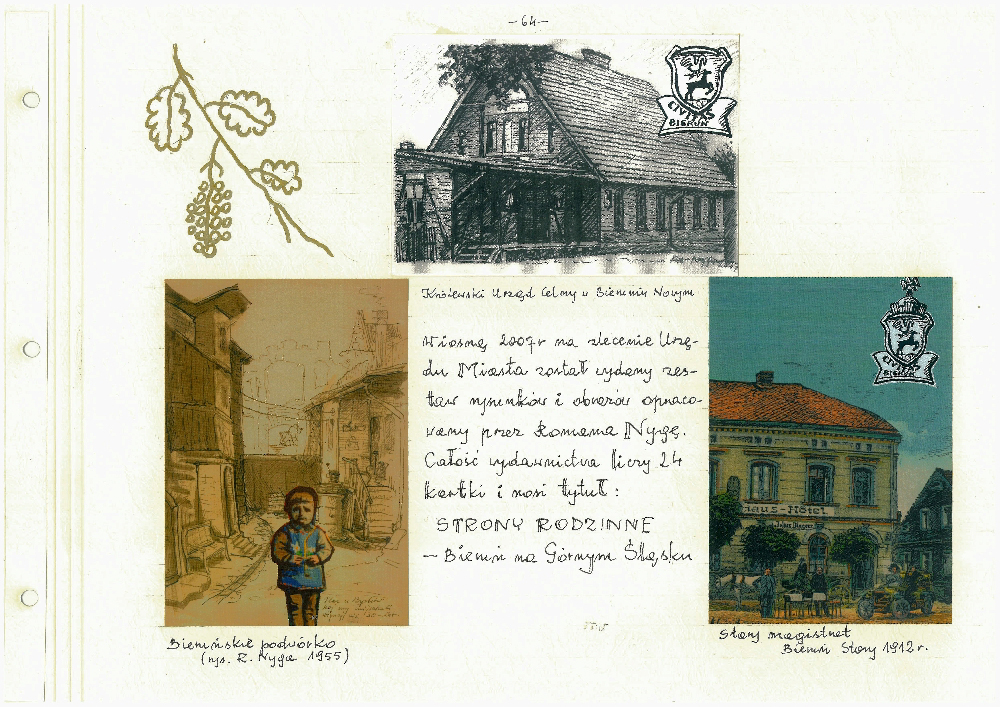 - 64 -
CIVITAS
BIERUŃ
Królewski Urząd Celny w Bieruniu Nowym
Wiosną 2007r na zlecenie Urzę-
du Miasta został wydany zes-
taw rysunków i obrazów opraco-
wany przez Romana Nygę.
Całość wydawnictwa liczy 24
kartki i nosi tytuł:
STRONY RODZINNE
- Bieruń na Górnym Śląsku
CIVITAS
BIERUŃ
haus-Hôtel
Bieruńskie podwórko
(rys. R. Nyga 1955)
Stary magistrat
Bieruń Stary 1912 r.